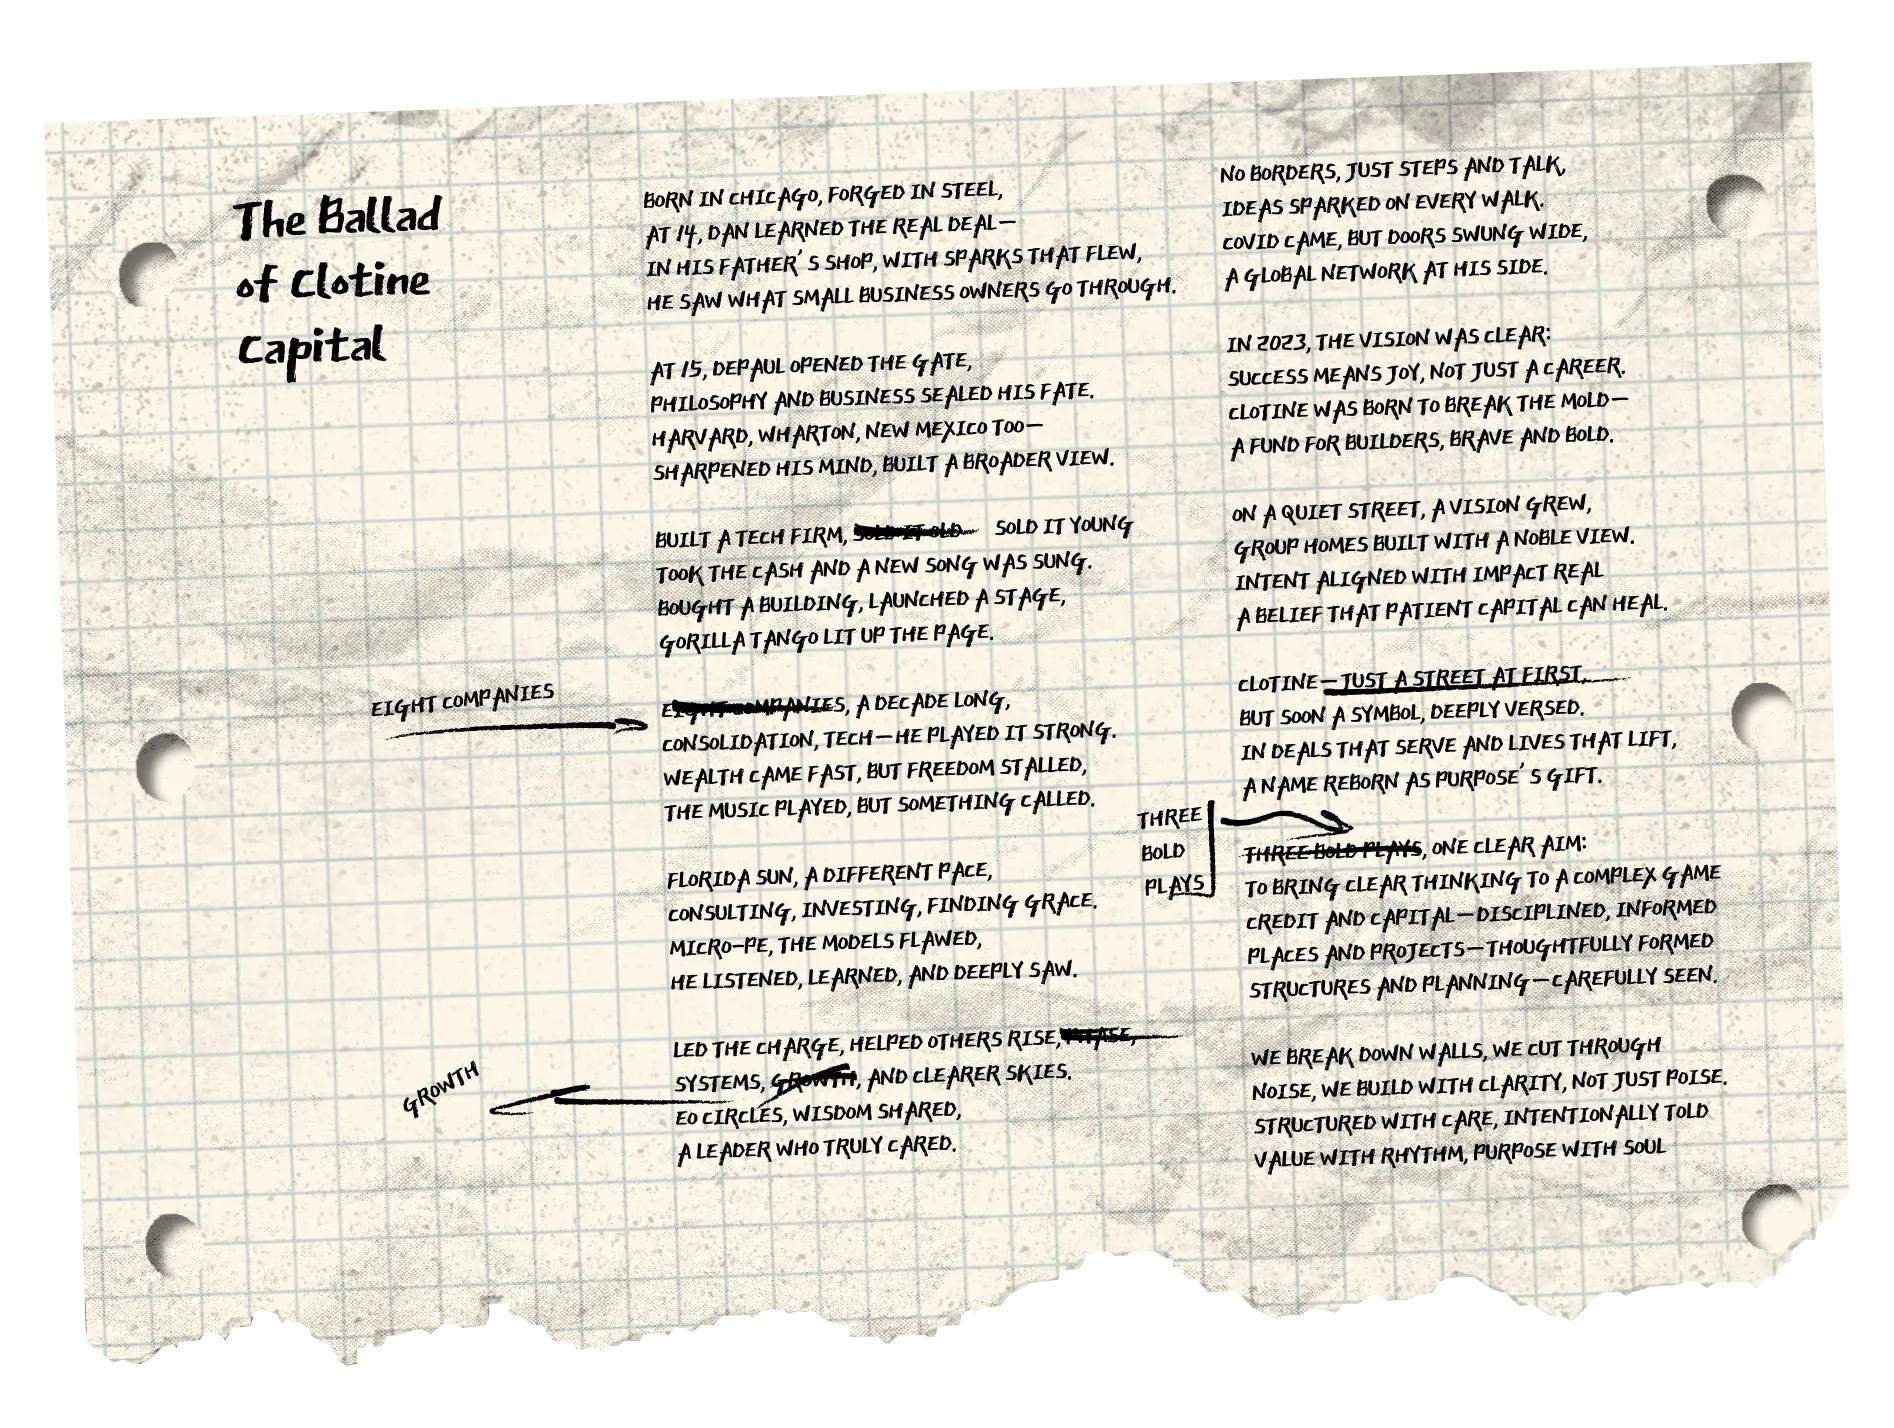 The Ballad
of Clotine
Capital
BORN IN CHICAGO, FORGED IN STEEL,
AT 14, DAN LEARNED THE REAL DEAL—
IN HIS FATHER'S SHOP, WITH SPARKS THAT FLEW,
HE SAW WHAT SMALL BUSINESS OWNERS GO THROUGH.
AT 15, DEPAUL OPENED THE GATE,
PHILOSOPHY AND BUSINESS SEALED HIS FATE.
HARVARD, WHARTON, NEW MEXICO TOO—
SHARPENED HIS MIND, BUILT A BROADER VIEW.
BUILT A TECH FIRM, SOLD IT OLD SOLD IT YOUNG
TOOK THE CASH AND A NEW SONG WAS SUNG.
BOUGHT A BUILDING, LAUNCHED A STAGE,
GORILLA TANGO LIT UP THE PAGE.
EIGHT COMPANIES
EIGHT COMPANIES, A DECADE LONG,
CONSOLIDATION, TECH—HE PLAYED IT STRONG.
WEALTH CAME FAST, BUT FREEDOM STALLED,
THE MUSIC PLAYED, BUT SOMETHING CALLED.
FLORIDA SUN, A DIFFERENT PACE,
CONSULTING, INVESTING, FINDING GRACE.
MICRO-PE, THE MODELS FLAWED,
HE LISTENED, LEARNED, AND DEEPLY SAW.
LED THE CHARGE, HELPED OTHERS RISE,
SYSTEMS, GROWTH, AND CLEARER SKIES.
GROWTH
EO CIRCLES, WISDOM SHARED,
A LEADER WHO TRULY CARED.
NO BORDERS, JUST STEPS AND TALK,
IDEAS SPARKED ON EVERY WALK.
COVID CAME, BUT DOORS SWUNG WIDE,
A GLOBAL NETWORK AT HIS SIDE.
IN 2023, THE VISION WAS CLEAR:
SUCCESS MEANS JOY, NOT JUST A CAREER.
CLOTINE WAS BORN TO BREAK THE MOLD—
A FUND FOR BUILDERS, BRAVE AND BOLD.
ON A QUIET STREET, A VISION GREW,
GROUP HOMES BUILT WITH A NOBLE VIEW.
INTENT ALIGNED WITH IMPACT REAL
A BELIEF THAT PATIENT CAPITAL CAN HEAL.
CLOTINE—JUST A STREET AT FIRST,
BUT SOON A SYMBOL, DEEPLY VERSED.
IN DEALS THAT SERVE AND LIVES THAT LIFT,
A NAME REBORN AS PURPOSE'S GIFT.
THREE
BOLD
PLAYS
THREE BOLD PLAYS, ONE CLEAR AIM:
TO BRING CLEAR THINKING TO A COMPLEX GAME
CREDIT AND CAPITAL—DISCIPLINED, INFORMED
PLACES AND PROJECTS—THOUGHTFULLY FORMED
STRUCTURES AND PLANNING—CAREFULLY SEEN.
WE BREAK DOWN WALLS, WE CUT THROUGH
NOISE, WE BUILD WITH CLARITY, NOT JUST POISE.
STRUCTURED WITH CARE, INTENTIONALLY TOLD
VALUE WITH RHYTHM, PURPOSE WITH SOUL